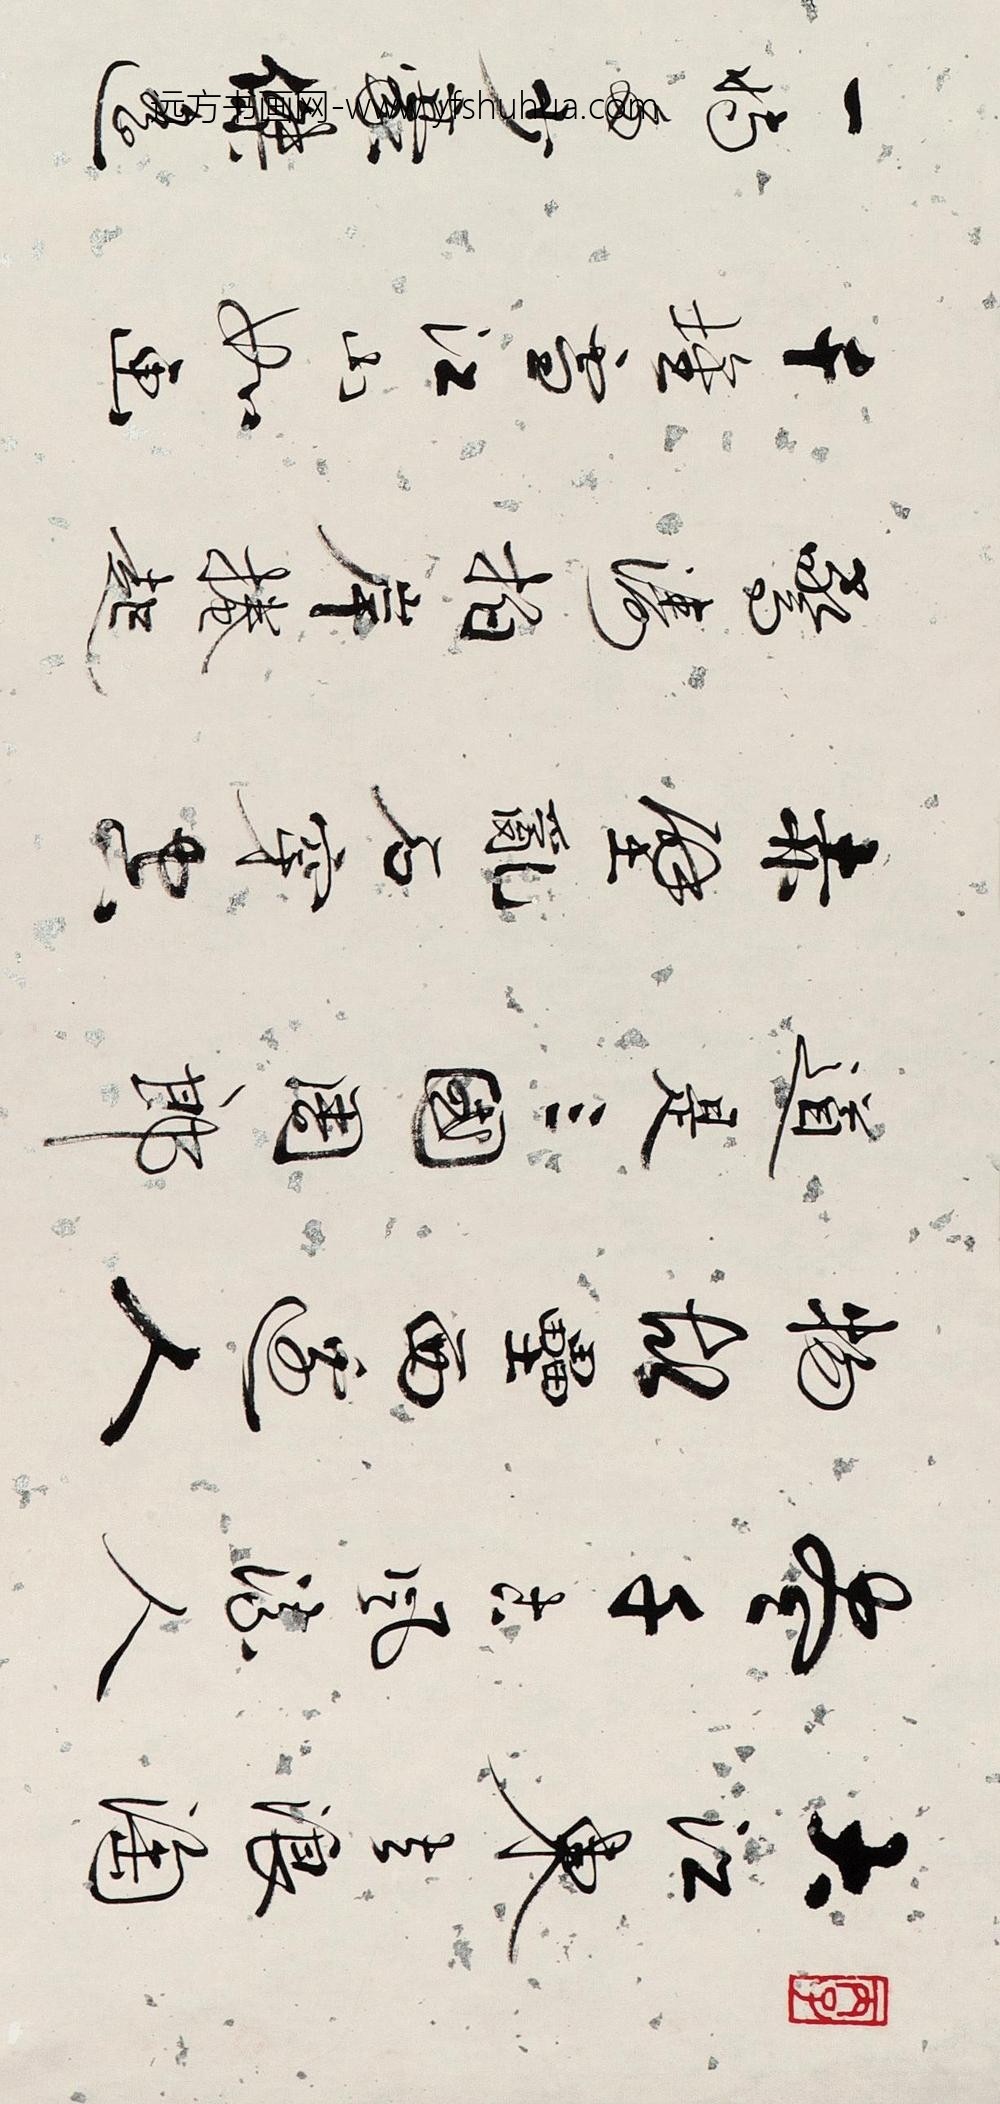 大江東去浪淘
盡千古風流人
物故壘西邊人
道是三國周郎
赤壁亂石穿空
驚濤拍岸捲起
千堆雪江山如畫
一時多少豪傑遙
远方书画网-www.yfshuhua.com